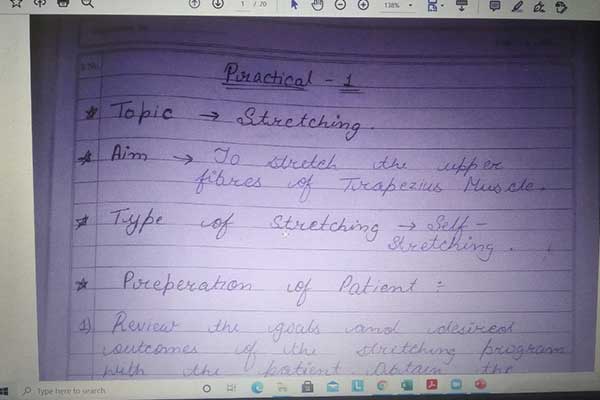 1 / 20
138%
Practical - 1
* Topic → Stretching.
* Aim → To stretch the upper
fibres of Trapezius Muscle.
* Type of Stretching → Self-
Stretching.
* Preperation of Patient :
1) Review the goals and desired
outcomes of the stretching program
with the patient. Obtain the
Type here to search